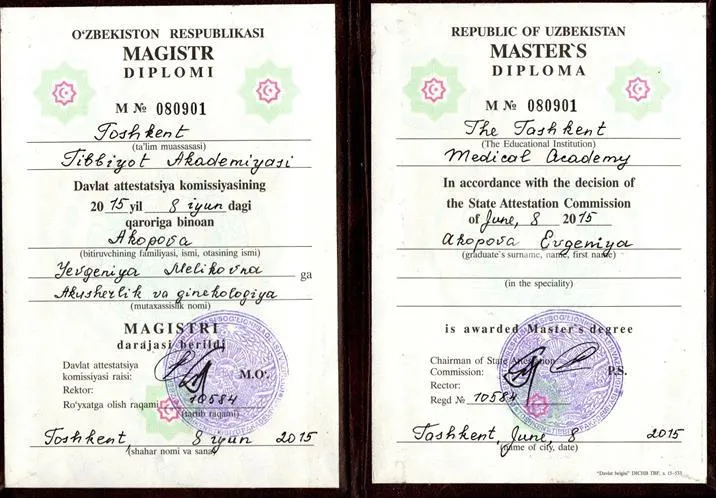 O‘ZBEKISTON RESPUBLIKASI
MAGISTR
DIPLOMI
M № 080901
Toshkent
(ta'lim muassasasi)
Tibbiyot Akademiyasi
Davlat attestatsiya komissiyasining
2015 yil 8 iyun dagi
qaroriga binoan
Akopova
(bitiruvchining familiyasi, ismi, otasining ismi)
Yevgeniya Melikovna ga
Akusherlik va ginekologiya
(mutaxassislik nomi)
MAGISTRI
darajasi berildi
Davlat attestatsiya
komissiyasi raisi:
M.O‘.
Rektor:
Ro‘yxatga olish raqami 10584
(tartib raqami)
Toshkent, 8 iyun 2015
(shahar nomi va sana)
REPUBLIC OF UZBEKISTAN
MASTER`S
DIPLOMA
M № 080901
The Tashkent
(The Educational Institution)
Medical Academy
In accordance with the decision of
the State Attestation Commission
of June, 8 2015
Akopova Evgeniya
(graduate`s surname, name, first name)
(in the speciality)
is awarded Master`s degree
Chairman of State Attestation
Commission:
P.S.
Rector:
Regd № 10584
Tashkent, June, 8 2015
(name of city, date)